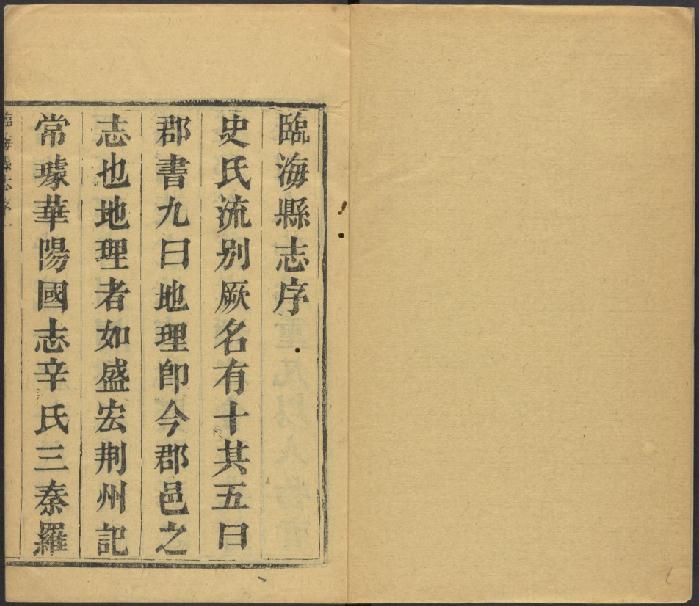 臨海縣志序
史氏流別厥名有十其五曰
郡書九曰地理卽今郡邑之
志也地理者如盛宏荆州記
常璩華陽國志辛氏三秦羅